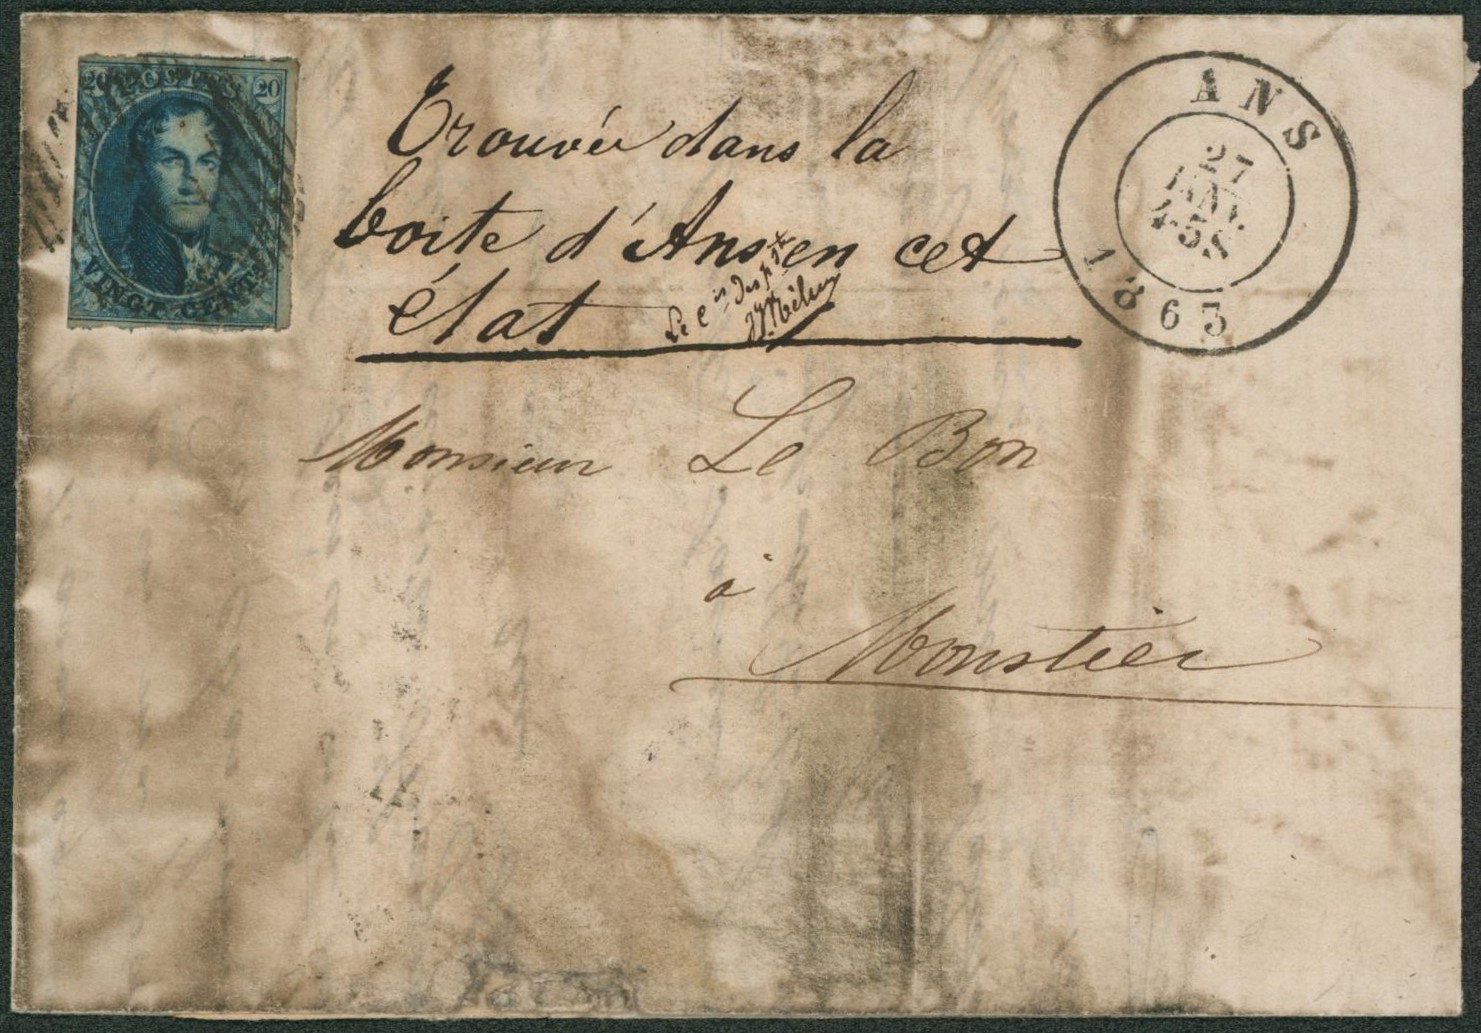 20 20
VINGT CENT
Trouvée dans la
boite d'Ans en cet
état
Le Cis des ptes
ANS
27
JANV.
4-5 S.
1863
Monsieur Le Bon
à
Monstier